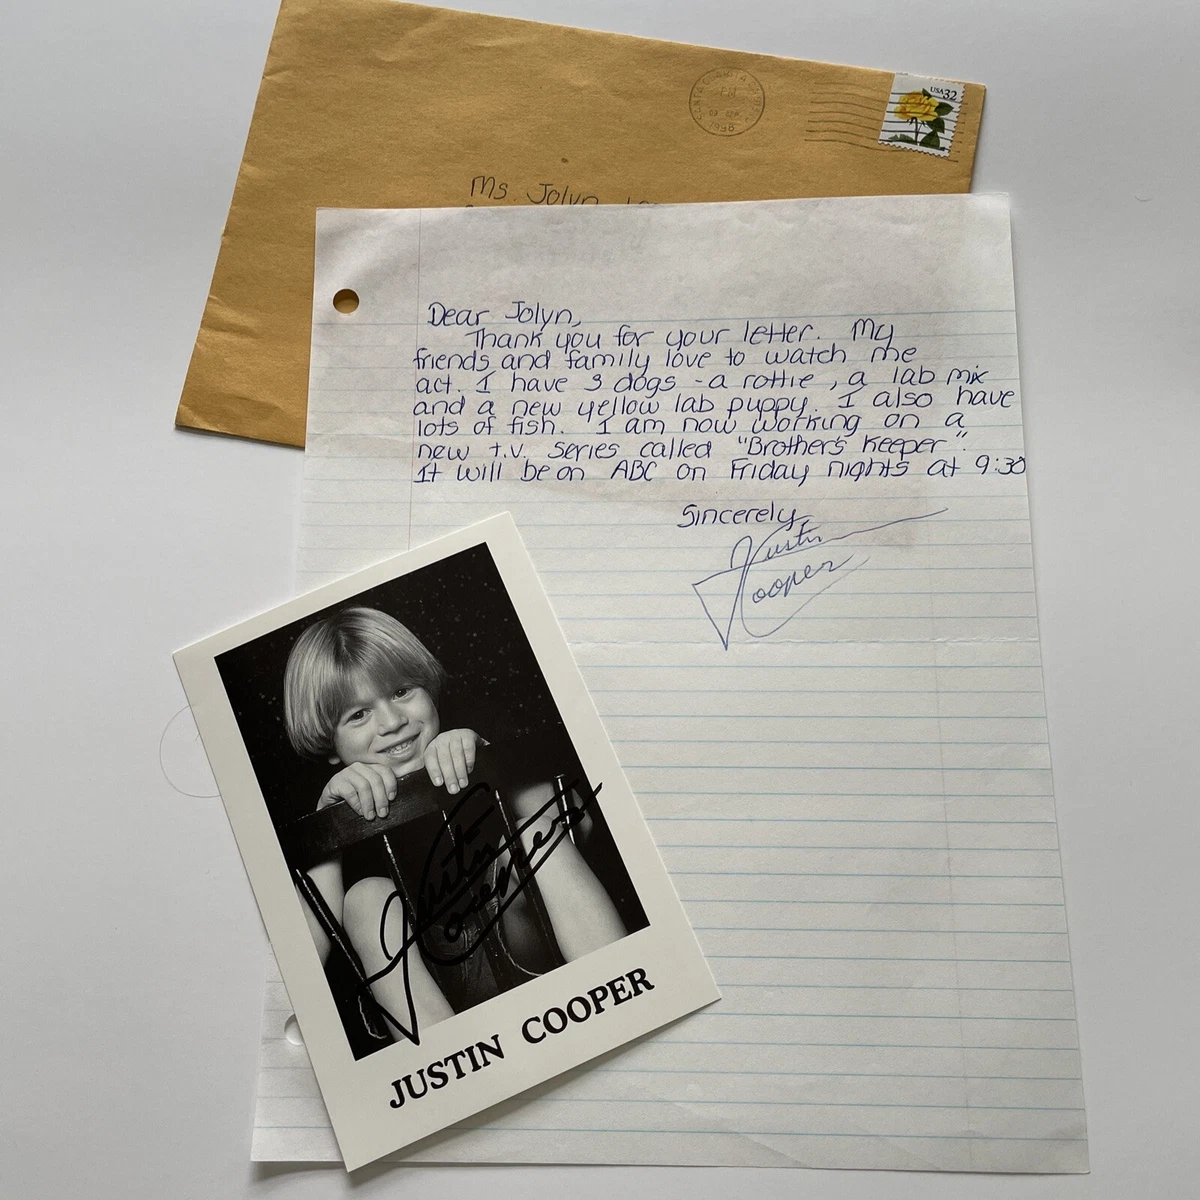 USA 32
PM
1998
Ms. Jolyn
Dear Jolyn,
Thank you for your letter. My
friends and family love to watch me
act. I have 3 dogs - a rottie, a lab mix
and a new yellow lab puppy. I also have
lots of fish. I am now working on a
new t.v. series called "Brother's Keeper".
It will be on ABC on Friday nights at 9:30
Sincerely,
Justin
Cooper
Justin
Cooper
JUSTIN COOPER